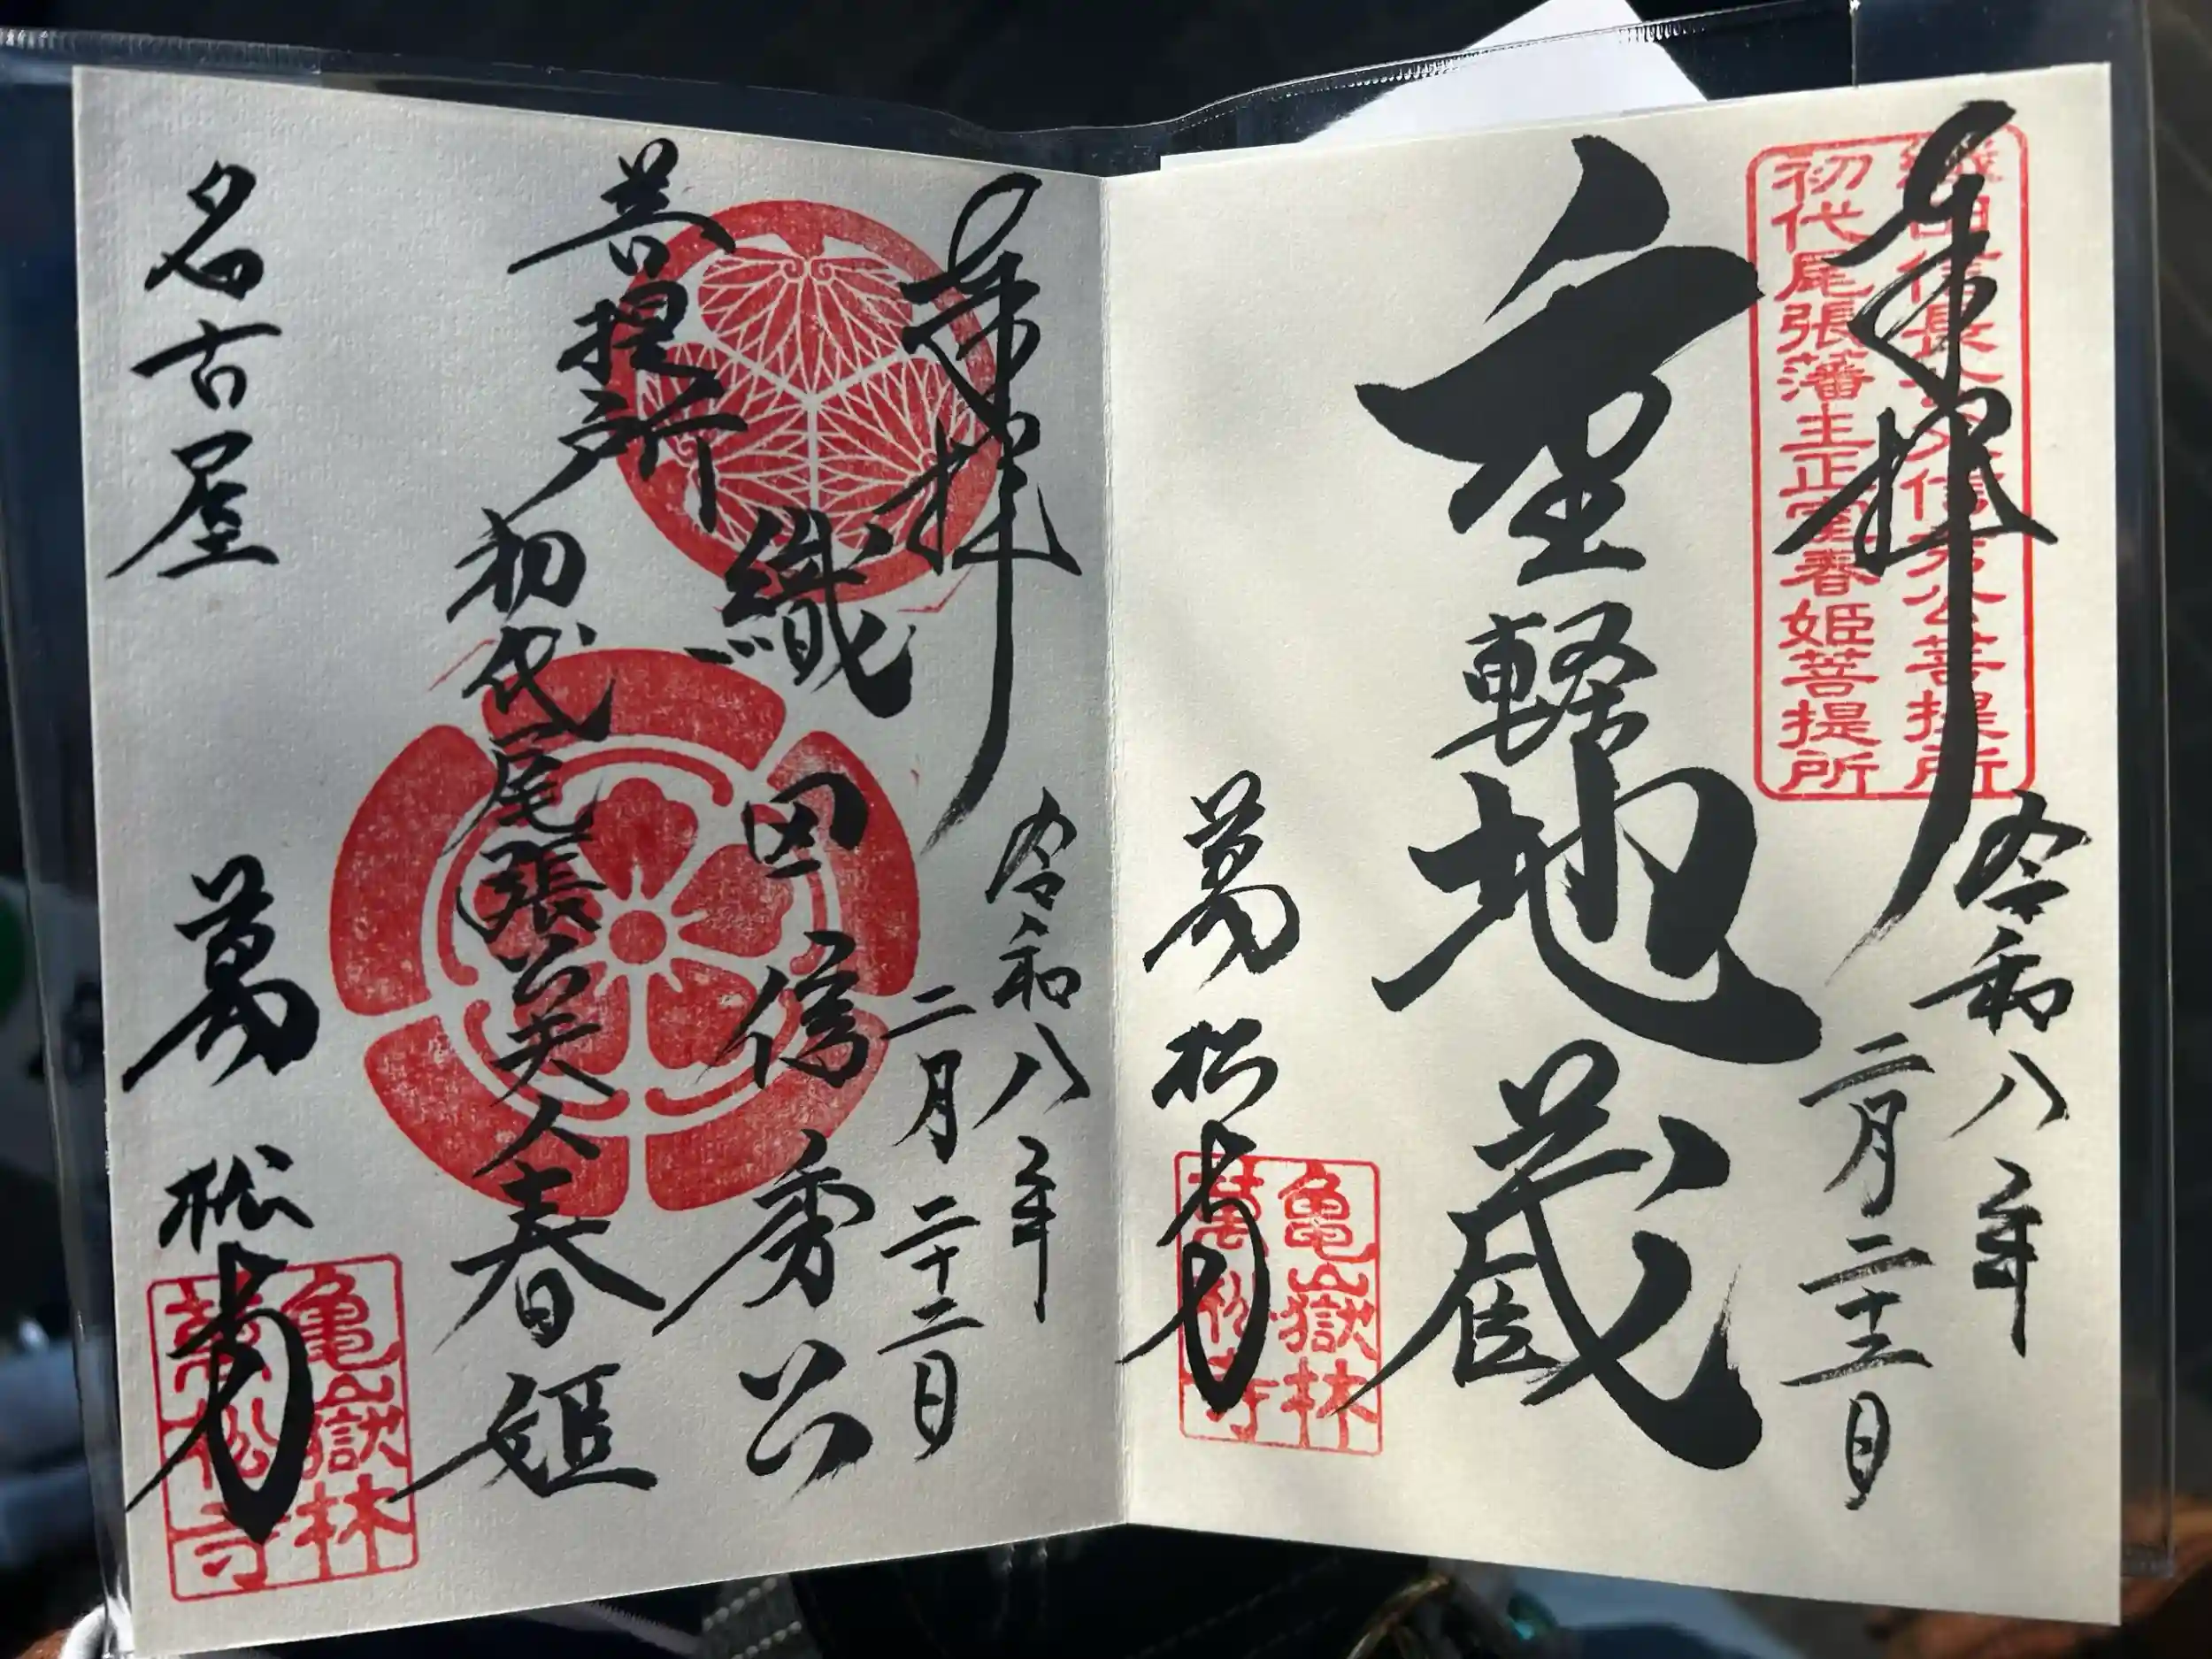 奉拝
令和八年
二月二十二日
初代尾張藩主正室春姫菩提所
重軽地蔵
萬松寺
亀嶽林
萬松寺
奉拝
令和八年
二月二十二日
織田信秀公
菩提所
初代尾張公夫人春姫
名古屋
萬松寺
亀嶽林
萬松寺